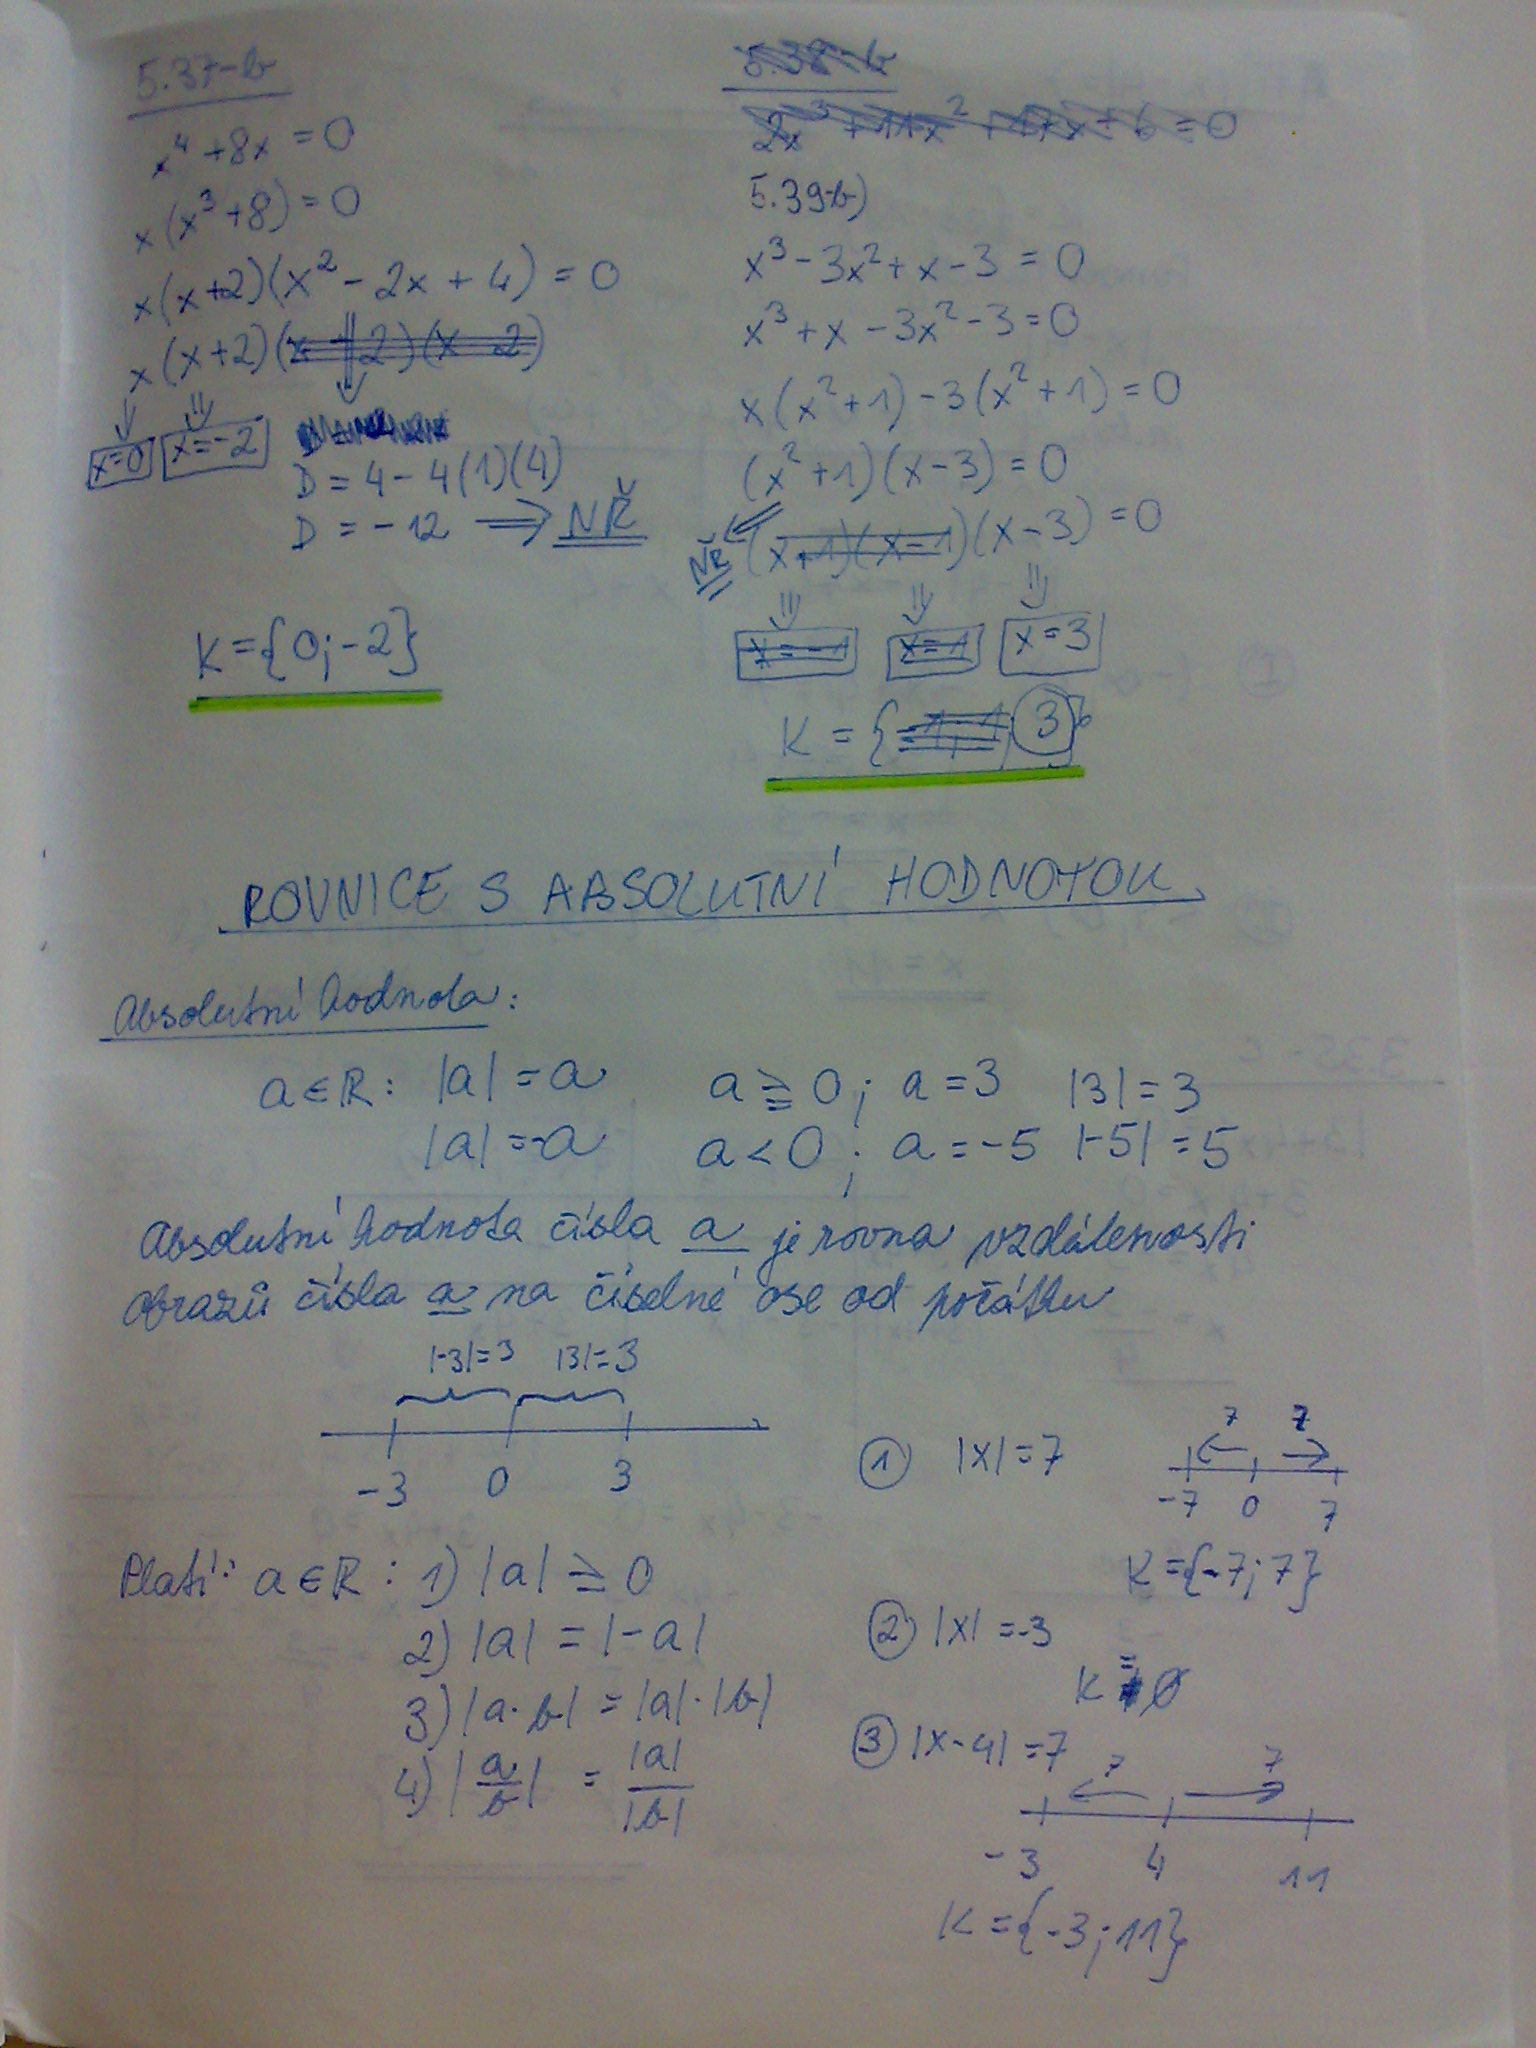 5.37-b
x⁴ + 8x = 0
x(x³ + 8) = 0
x(x+2)(x² - 2x + 4) = 0
x(x+2)(x + 2)(x - 2)
x=0 x=-2
D = 4 - 4(1)(4)
D = -12 ⟹ NŘ
K = {0; -2}
5.38-b
2x³ + 11x² + 17x + 6 = 0
5.39-b)
x³ - 3x² + x - 3 = 0
x³ + x - 3x² - 3 = 0
x(x² + 1) - 3(x² + 1) = 0
(x² + 1)(x - 3) = 0
NŘ (x+1)(x-1)(x-3) = 0
x = -1 x=1 x=3
K = {-1; 1; 3}
ROVNICE S ABSOLUTNÍ HODNOTOU
Absolutní hodnota:
a ∈ R: |a| = a a ≧ 0; a = 3 |3| = 3
|a| = -a a < 0; a = -5 |-5| = 5
Absolutní hodnota čísla a je rovna vzdálenosti
obrazů čísla a na číselné ose od počátku
|-3| = 3 |3| = 3
-3 0 3
Platí: a ∈ R: 1) |a| ≥ 0
2) |a| = |-a|
3) |a·b| = |a|·|b|
4) |a/b| = |a|/|b|
① |x| = 7
7 7
-7 0 7
K = {-7; 7}
② |x| = -3
K = ∅
③ |x-4| = 7
7 7
-3 4 11
K = {-3; 11}